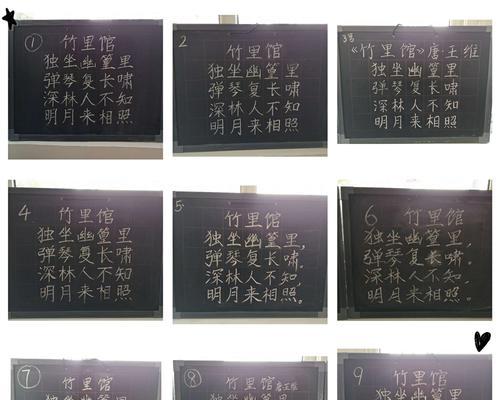 ①
竹里馆
独坐幽篁里
弹琴复长啸
深林人不知
明月来相照
2
竹里馆
独坐幽篁里
弹琴复长啸
深林人不知
明月来相照
3号
《竹里馆》唐王维
独坐幽篁里
弹琴复长啸
深林人不知
明月来相照
4
竹里馆
独坐幽篁里
弹琴复长啸
深林人不知
明月来相照
5.
竹里馆
独坐幽篁里,
弹琴复长啸。
深林人不知,
明月来相照。
6
竹里馆
独坐幽篁里,
弹琴复长啸。
深林人不知,
明月来相照。
⑦
竹里馆
⑧
竹里馆唐王维
9
竹里馆